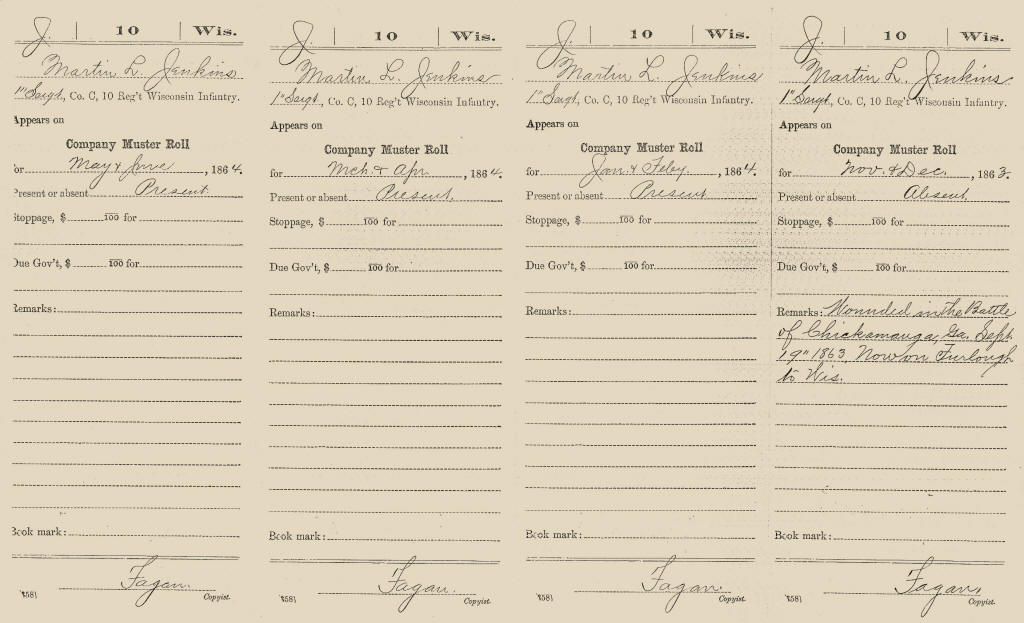 J. | 10 | Wis.
Martin L. Jenkins
1" Sergt, Co. C, 10 Reg't Wisconsin Infantry.
Appears on
Company Muster Roll
for May & June, 1864.
Present or absent Present
Stoppage, $ 100 for
Due Gov't, $ 100 for
Remarks:
Book mark:
Fagan.
(358) Copyist.
J. | 10 | Wis.
Martin L. Jenkins
1" Sergt, Co. C, 10 Reg't Wisconsin Infantry.
Appears on
Company Muster Roll
for Mch. & Apr., 1864.
Present or absent Present.
Stoppage, $ 100 for
Due Gov't, $ 100 for
Remarks:
Book mark:
Fagan.
(358) Copyist.
J. | 10 | Wis.
Martin L. Jenkins
1" Sergt, Co. C, 10 Reg't Wisconsin Infantry.
Appears on
Company Muster Roll
for Jan. & Feby., 1864.
Present or absent Present
Stoppage, $ 100 for
Due Gov't, $ 100 for
Remarks:
Book mark:
Fagan.
(358) Copyist.
J. | 10 | Wis.
Martin L. Jenkins
1" Sergt, Co. C, 10 Reg't Wisconsin Infantry.
Appears on
Company Muster Roll
for Nov. & Dec., 1863.
Present or absent Absent.
Stoppage, $ 100 for
Due Gov't, $ 100 for
Remarks: Wounded in the Battle
of Chickamauga, Ga. Sept.
19" 1863, Now on Furlough
to Wis.
Book mark:
Fagan.
(358) Copyist.